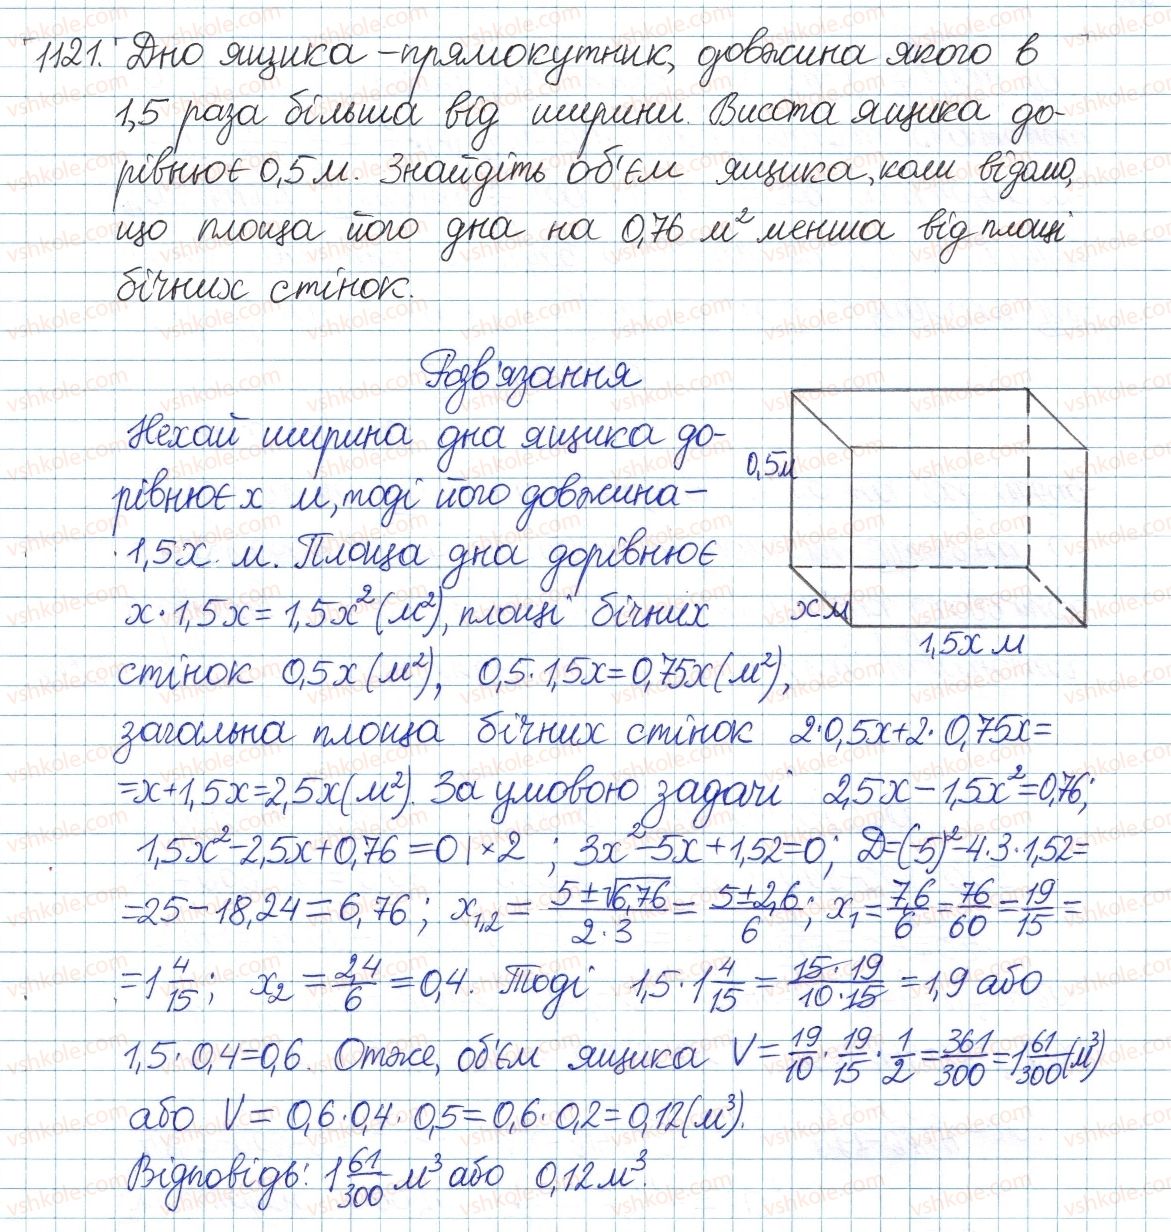 1121. Дно ящика – прямокутник, довжина якого в
1,5 раза більша від ширини. Висота ящика до-
рівнює 0,5 м. Знайдіть об'єм ящика, коли відомо,
що площа його дна на 0,76 м² менша від площі
бічних стінок.
Розв'язання
Нехай ширина дна ящика до-
рівнює х м, тоді його довжина –
1,5х м. Площа дна дорівнює
х · 1,5х = 1,5х² (м²), площі бічних
стінок 0,5х (м²), 0,5 · 1,5х = 0,75х (м²),
0,5м
х м
1,5х м
загальна площа бічних стінок 2·0,5х+2·0,75х=
=х+1,5х=2,5х(м²). За умовою задачі 2,5х – 1,5х² = 0,76;
1,5х² – 2,5х + 0,76 = 0 | × 2 ; 3х² – 5х + 1,52 = 0; D = (-5)² – 4·3·1,52 =
= 25 – 18,24 = 6,76 ; х₁,₂ = (5 ± √6,76)/(2·3) = (5 ± 2,6)/6 ; х₁ = 7,6/6 = 76/60 = 19/15 =
= 1 4/15 ; х₂ = 2,4/6 = 0,4. Тоді 1,5 · 1 4/15 = (15 · 19)/(10 · 15) = 1,9 або
1,5 · 0,4 = 0,6. Отже, об'єм ящика V = 19/10 · 19/15 · 1/2 = 361/300 = 1 61/300 (м³)
або V = 0,6 · 0,4 · 0,5 = 0,6 · 0,2 = 0,12 (м³).
Відповідь: 1 61/300 м³ або 0,12 м³.